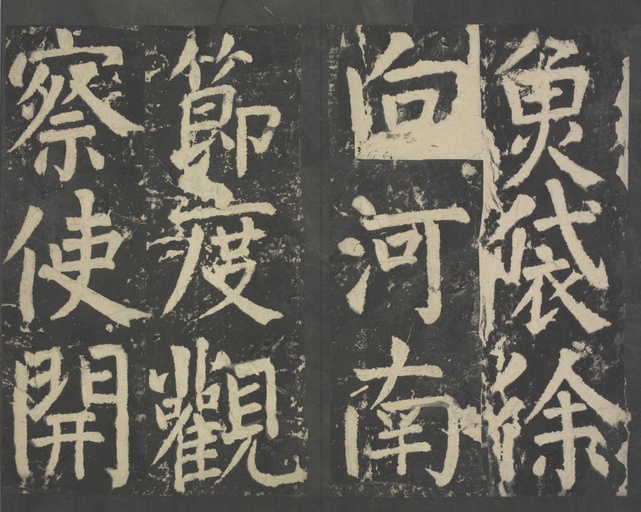 魚袋徐
向河南
節度觀
察使開